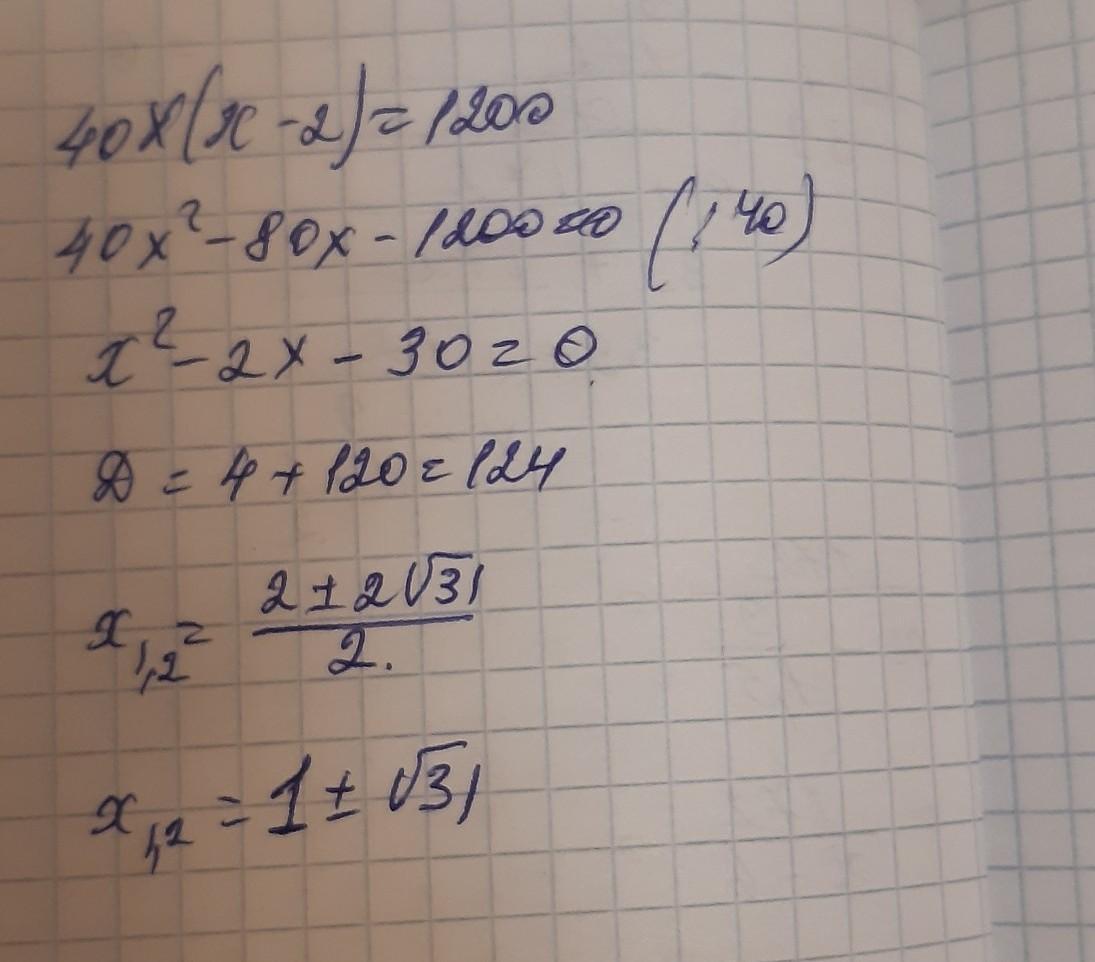 40x(x-2)=1200
40x²-80x-1200=0 (:40)
x²-2x-30=0
D=4+120=124
x₁,₂=(2±2√31)/2.
x₁,₂=1±√31